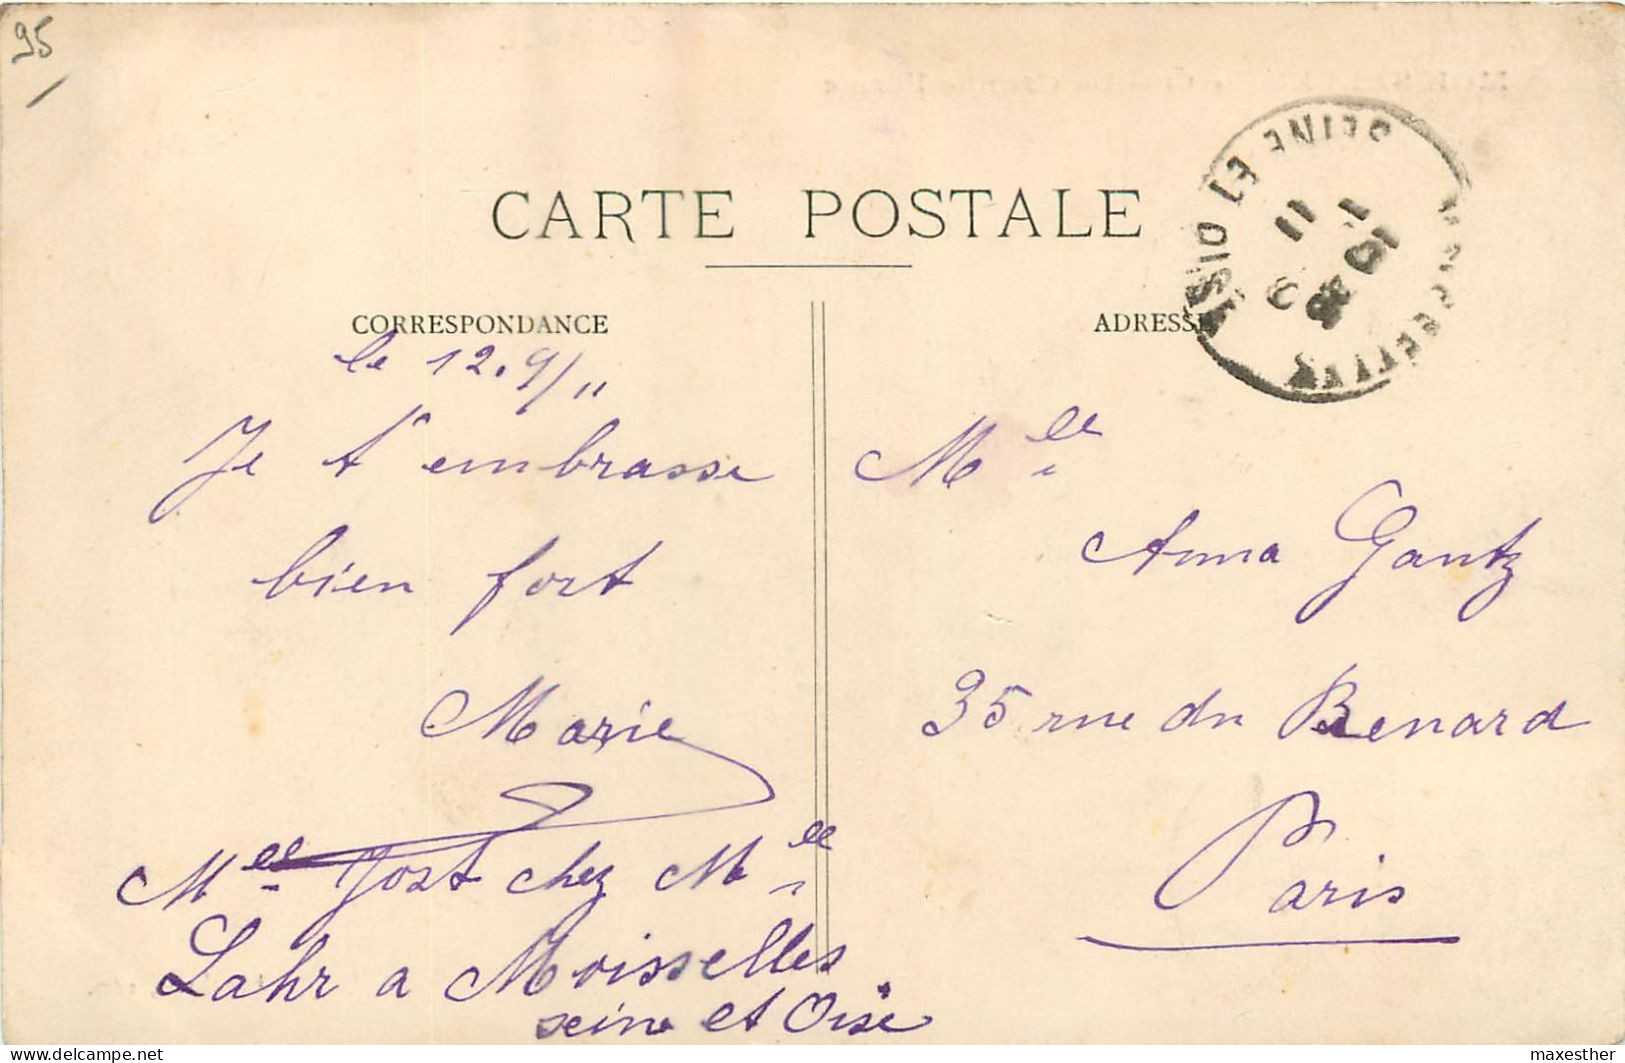 95
CARTE POSTALE
SEINE ET OISE
CORRESPONDANCE
le 12.9/11
Je t'embrasse
bien fort
Marie
Mlle Jost chez Mlle
Lahr a Moisselles
seine et Oise
ADRESSE
Mlle
Anna Gantz
35 rue du Renard
Paris
maxesther